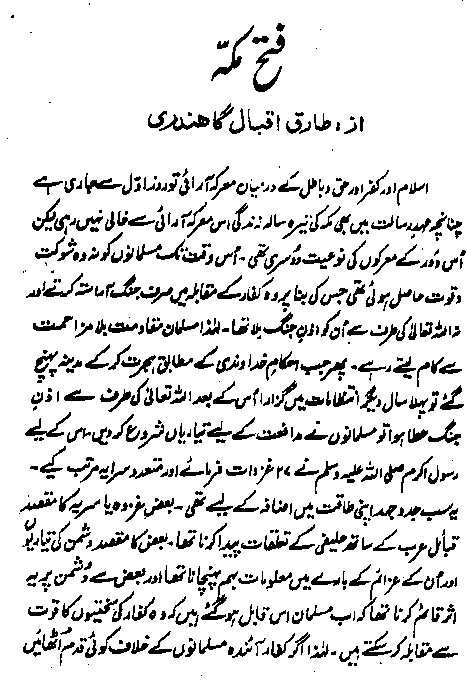 فتح مکہ
از: طارق اقبال گاہندری
اسلام اور کفر اور حق و باطل کے درمیان معرکہ آرائی تو روزِ اوّل سے جاری ہے
چنانچہ عہدِ رسالت میں بھی مکہ کی تیرہ سالہ زندگی اس معرکہ آرائی سے خالی نہیں رہی لیکن
اُس دَور کے معرکوں کی نوعیت دوسری تھی۔ اُس وقت تک مسلمانوں کو نہ وہ شوکت
و قوت حاصل ہوئی تھی جس کی بنا پر وہ کفار کے مقابلہ میں صرف جنگ آراستہ کرتے اور
نہ اللہ تعالیٰ کی طرف سے اُن کو اذنِ جنگ ملا تھا۔ لہٰذا مسلمان مقاومت بلا مزاحمت
سے کام لیتے رہے۔ پھر جب احکامِ خداوندی کے مطابق ہجرت کر کے مدینہ پہنچ
گئے تو پہلا سال دیگر انتظامات میں گزارا اُس کے بعد اللہ تعالیٰ کی طرف سے اذنِ
جنگ عطا ہوا تو مسلمانوں نے مدافعت کے لیے تیاریاں شروع کر دیں۔ اس کے لیے
رسول اکرم صلی اللہ علیہ وسلم نے ۲۷ غزوات فرمائے اور متعدد سرایہ مرتب کیے۔
یہ سب جدوجہد اپنی طاقت میں اضافہ کے لیے تھی۔ بعض غزوہ یا سریہ کا مقصد
قبائل عرب کے ساتھ حلیفی کے تعلقات پیدا کرنا تھا۔ بعض کا مقصد دشمن کی تیاریوں
اور اُن کے عزائم کے بارے میں معلومات بہم پہنچانا تھا اور بعض سے دُشمن پر یہ
اثر قائم کرنا تھا کہ اب مسلمان اس قابل ہو گئے ہیں کہ وہ کفار کی سختیوں کا قوت
سے مقابلہ کر سکتے ہیں۔ لہٰذا اگر کفار آئندہ مسلمانوں کے خلاف کوئی قدم اُٹھائیں